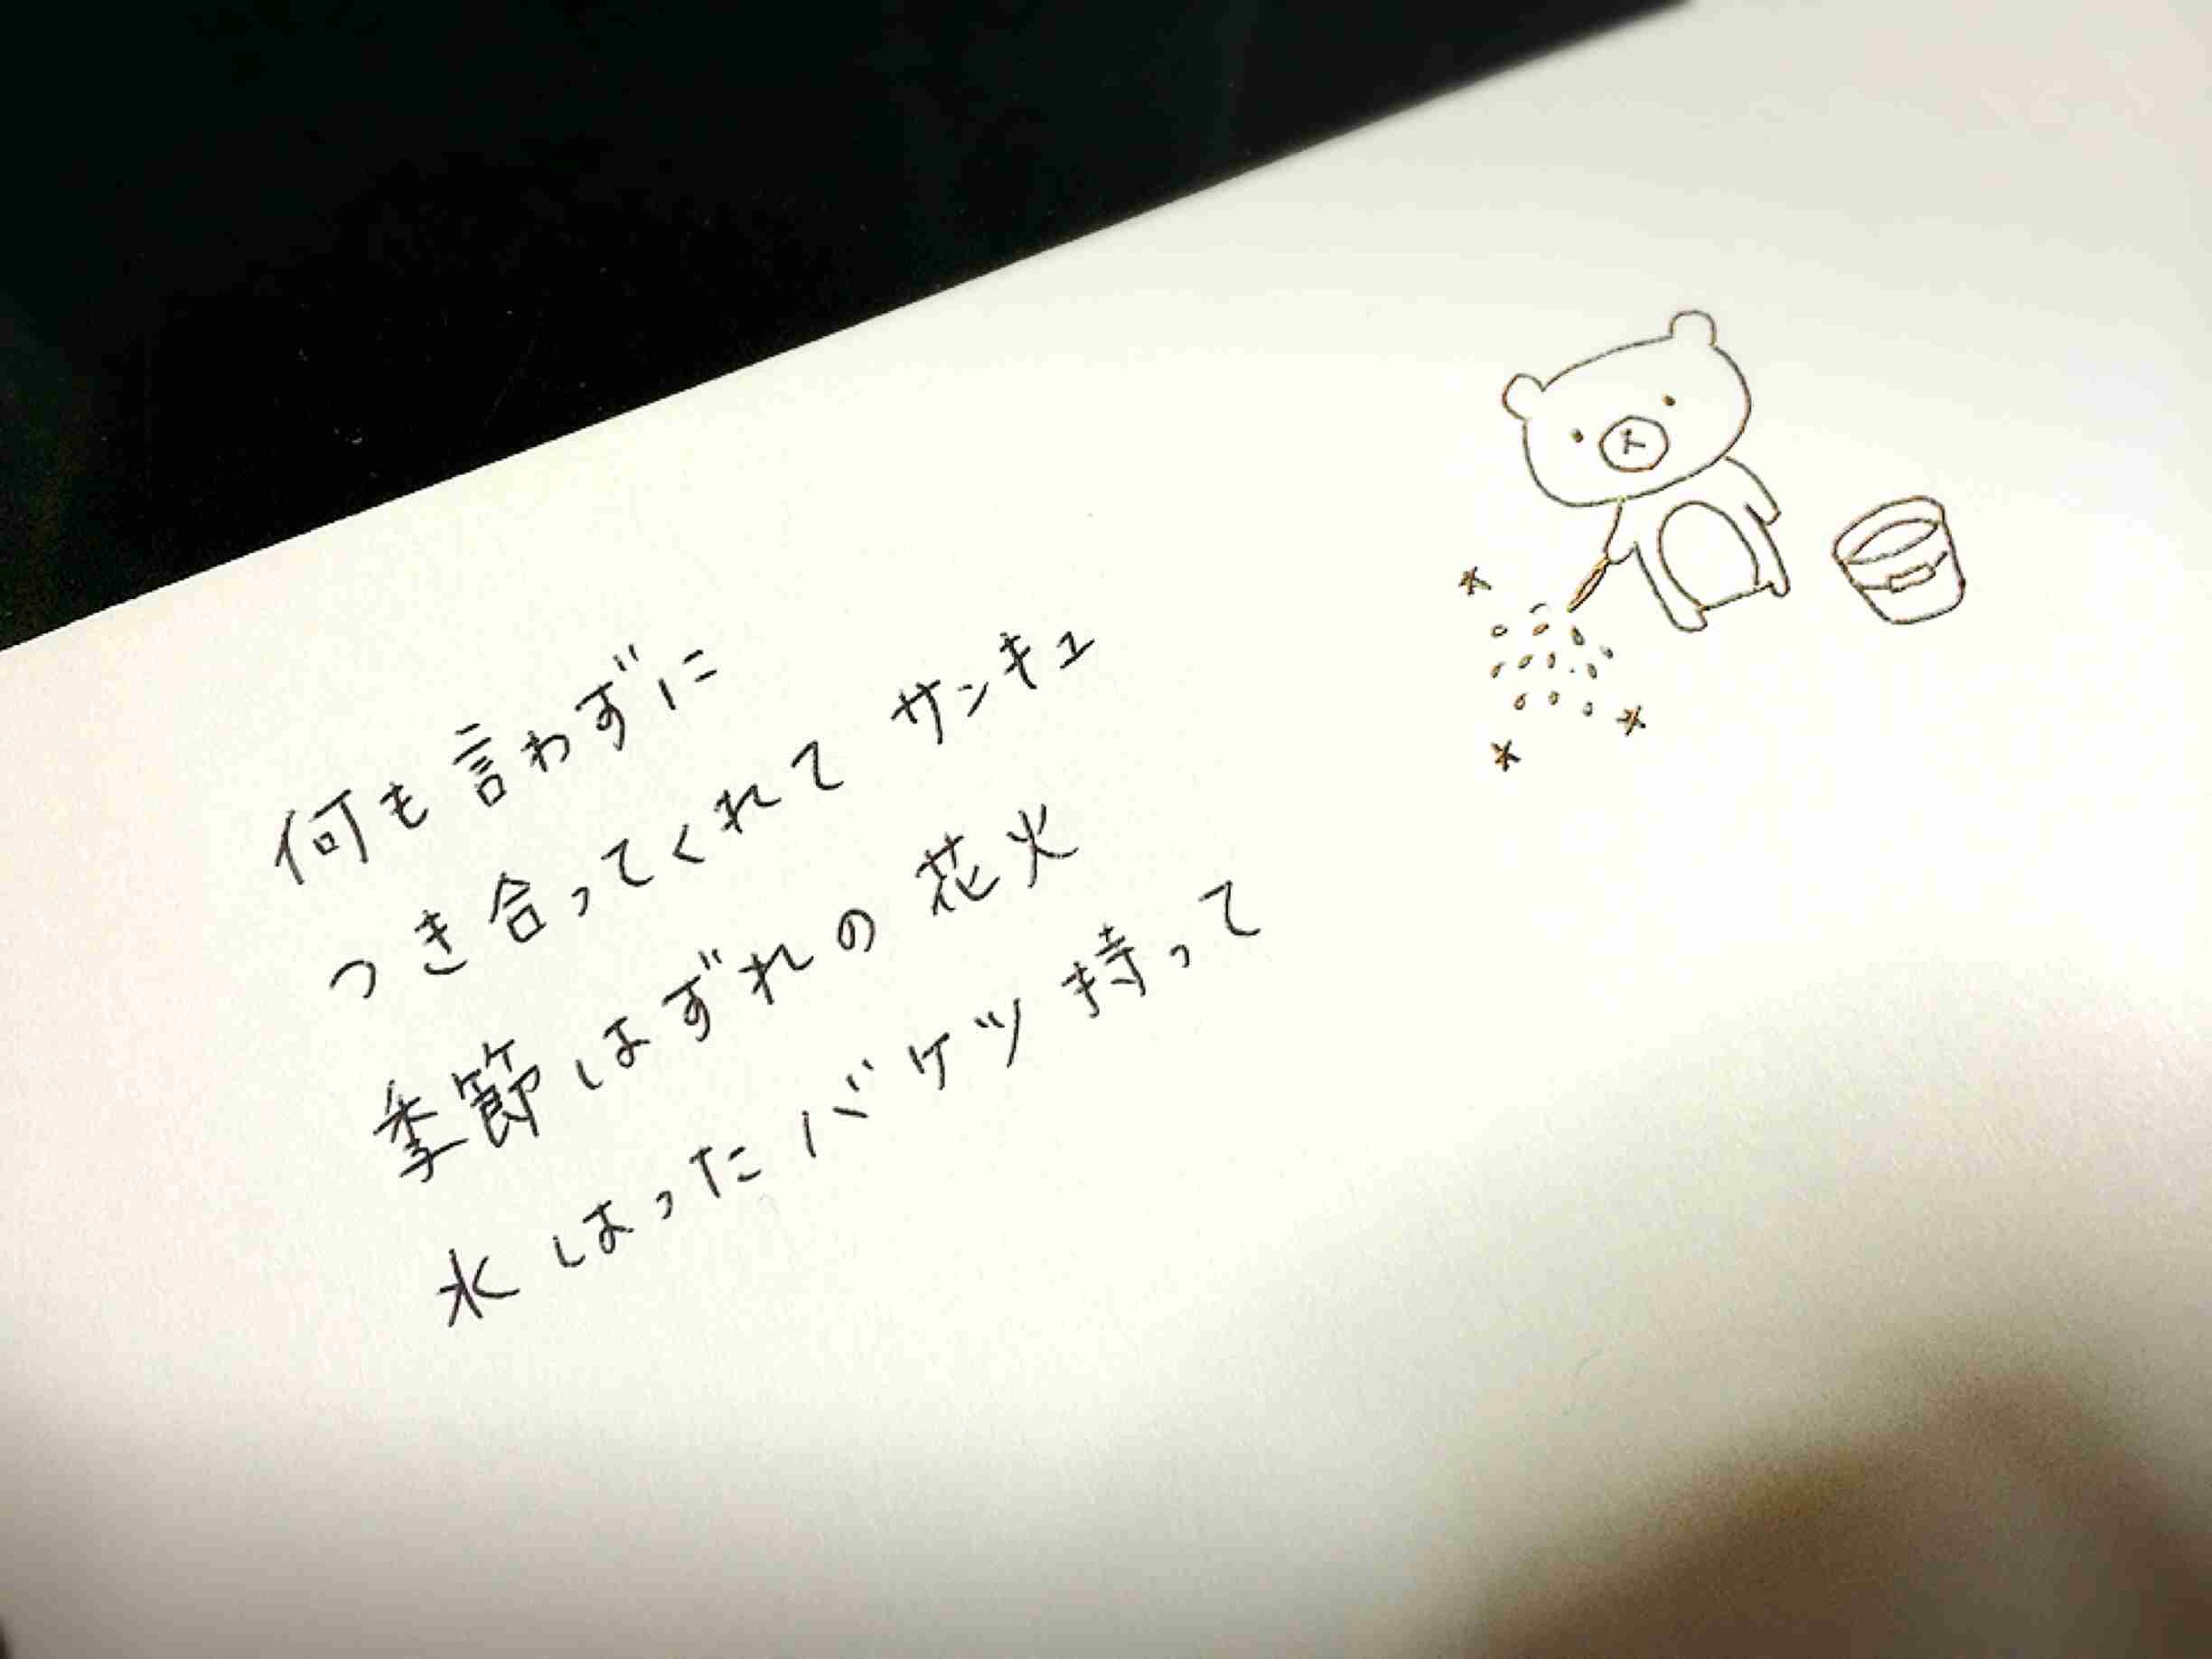 何も言わずに
つき合ってくれて サンキュ
季節はずれの 花火
水 はった バケツ 持って